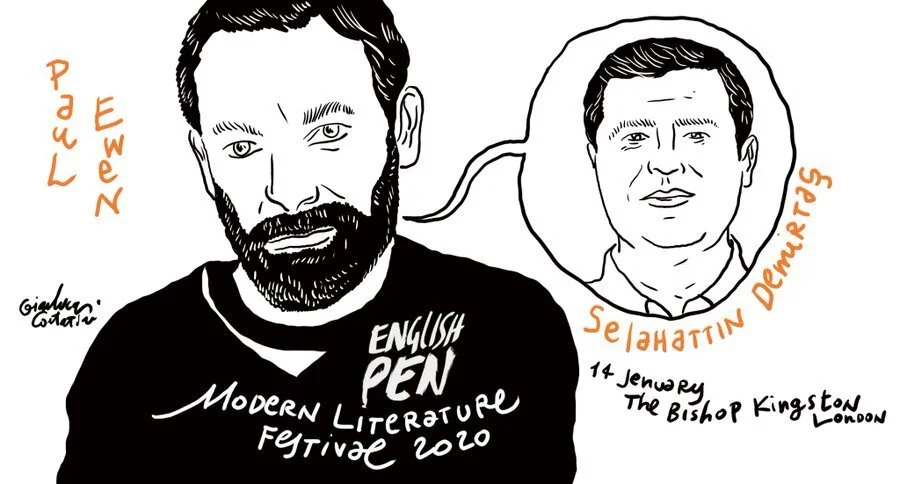 PauL
EweN
Gianluca
Costantini
ENGLISH
PEN
MODERN LITERATURE
FESTIVAL 2020
SelaHATTIN DEMIRTAŞ
14 Jenuary
THE BISHOP KINGSTON
LONDON